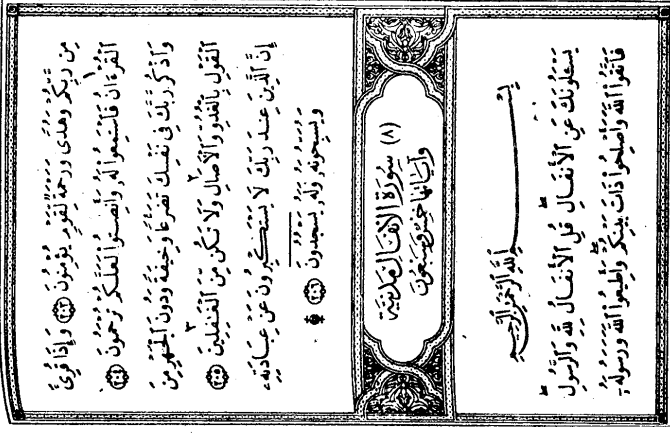 مِن رَّبِّكُمْ وَهُدًى وَرَحْمَةٌ لِّقَوْمٍ يُؤْمِنُونَ ﴿٢٠٣﴾ وَإِذَا قُرِئَ
الْقُرْءَانُ فَاسْتَمِعُوا لَهُ وَأَنصِتُوا لَعَلَّكُمْ تُرْحَمُونَ ﴿٢٠٤﴾
وَاذْكُر رَّبَّكَ فِي نَفْسِكَ تَضَرُّعًا وَخِيفَةً وَدُونَ الْجَهْرِ مِنَ
الْقَوْلِ بِالْغُدُوِّ وَالْآصَالِ وَلَا تَكُن مِّنَ الْغَافِلِينَ ﴿٢٠٥﴾
إِنَّ الَّذِينَ عِندَ رَبِّكَ لَا يَسْتَكْبِرُونَ عَنْ عِبَادَتِهِ
وَيُسَبِّحُونَهُ وَلَهُ يَسْجُدُونَ ﴿٢٠٦﴾
(٨) سُورَةُ الْأَنفَالِ مَدَنِيَّة
وَآيَاتُهَا خَمْسٌ وَسَبْعُونَ
بِسْمِ اللَّهِ الرَّحْمَٰنِ الرَّحِيمِ
يَسْـَٔلُونَكَ عَنِ الْأَنفَالِ قُلِ الْأَنفَالُ لِلَّهِ وَالرَّسُولِ
فَاتَّقُوا اللَّهَ وَأَصْلِحُوا ذَاتَ بَيْنِكُمْ وَأَطِيعُوا اللَّهَ وَرَسُولَهُ